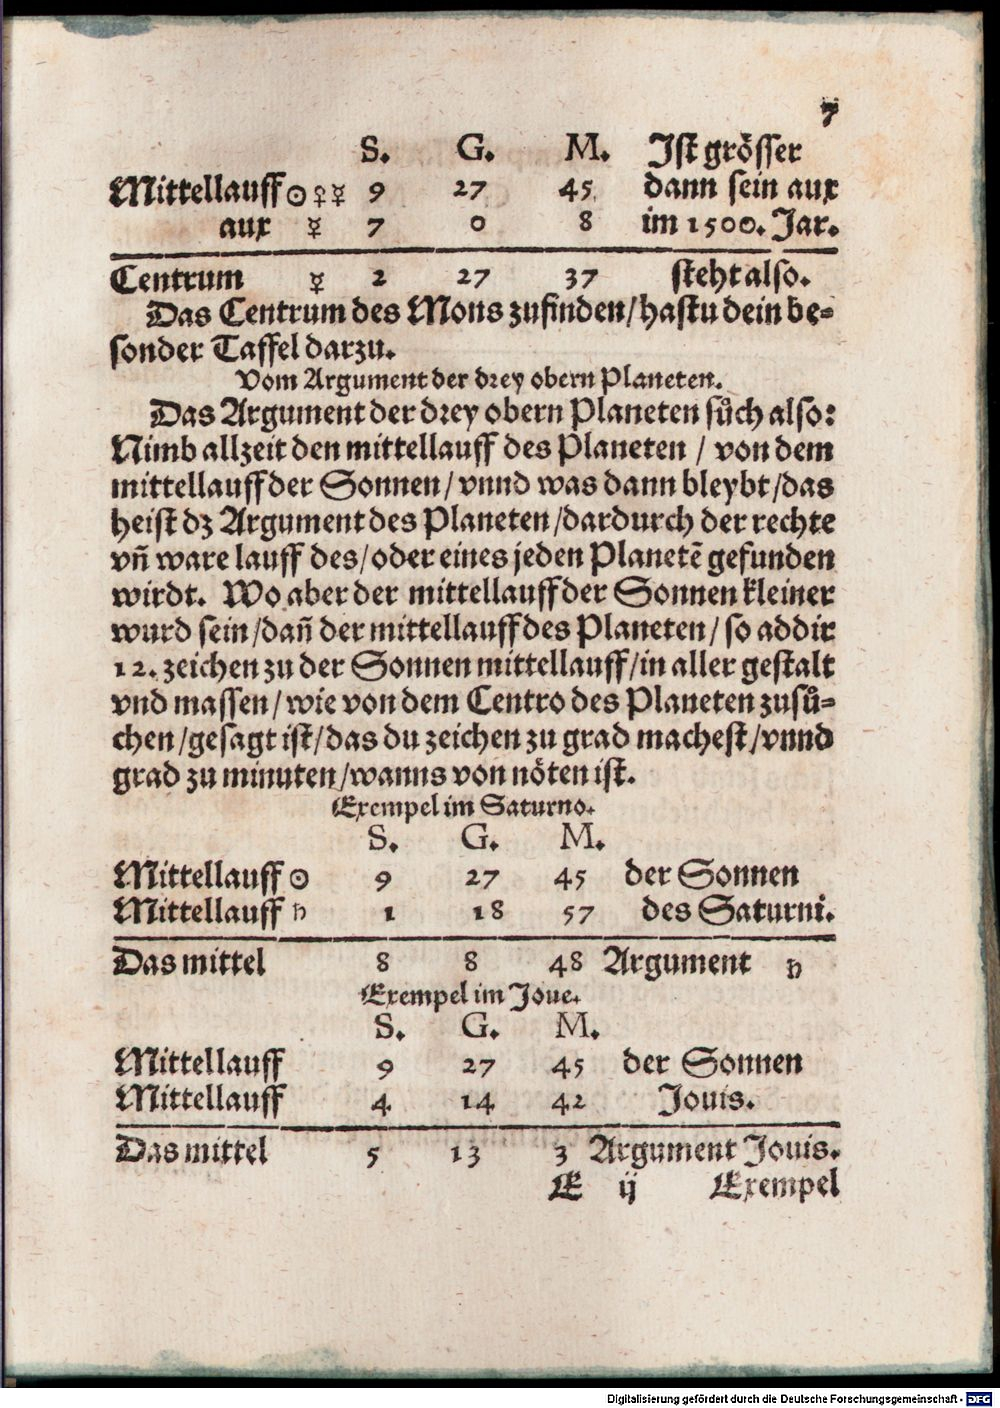 7
S. G. M. Ist grösser
Mittellauff ☉ ♀ ☿ 9 27 45 dann sein aux
aux ☿ 7 0 8 im 1500. Jar.
Centrum ☿ 2 27 37 steht also.
Das Centrum des Mons zufinden/hastu dein be⸗
sonder Taffel darzu.
Vom Argument der drey obern Planeten.
Das Argument der drey obern Planeten sůch also:
Nimb allzeit den mittellauff des Planeten / von dem
mittellauff der Sonnen/vnnd was dann bleybt/das
heist dz Argument des Planeten/dardurch der rechte
vñ ware lauff des/oder eines jeden Planetẽ gefunden
wirdt. Wo aber der mittellauff der Sonnen kleiner
wurd sein/dañ der mittellauff des Planeten/so addir
12. zeichen zu der Sonnen mittellauff/in aller gestalt
vnd massen/wie von dem Centro des Planeten zusů⸗
chen/gesagt ist/das du zeichen zu grad machest/vnnd
grad zu minuten/wanns von nöten ist.
Exempel im Saturno.
S. G. M.
Mittellauff ☉ 9 27 45 der Sonnen
Mittellauff ♄ 1 18 57 des Saturni.
Das mittel 8 8 48 Argument ♄
Exempel im Joue.
S. G. M.
Mittellauff 9 27 45 der Sonnen
Mittellauff 4 14 42 Jouis.
Das mittel 5 13 3 Argument Jouis.
E ij Exempel
Digitalisierung gefördert durch die Deutsche Forschungsgemeinschaft - DFG